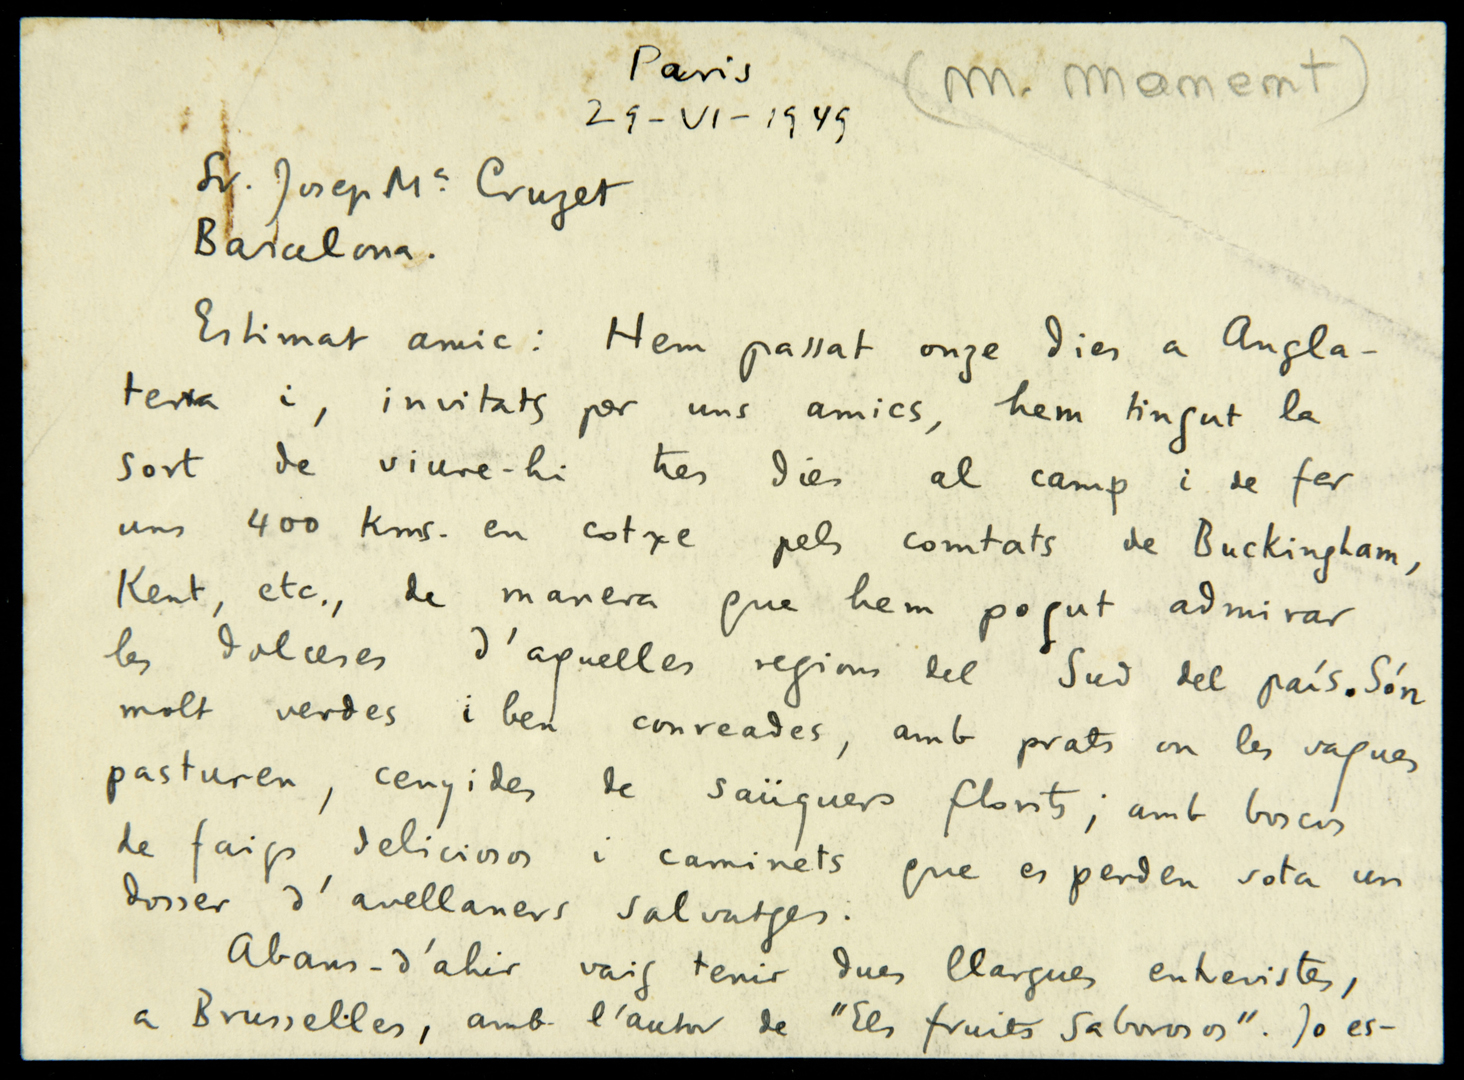 Paris
(M. Manent)
29-VI-1949
Sr. Josep Mª Cruzet
Barcelona.
Estimat amic: Hem passat onze dies a Angla-
terra i, invitats per uns amics, hem tingut la
sort de viure-hi tres dies al camp i de fer
uns 400 kms. en cotxe pels comtats de Buckingham,
Kent, etc., de manera que hem pogut admirar
les dolceses d'aquelles regions del Sud del país. Són
molt verdes i ben conreades, amb prats on les vaques
pasturen, cenyides de saüquers florits; amb boscos
de faigs deliciosos i caminets que es perden sota un
dosser d'avellaners salvatges.
Abans-d'ahir vaig tenir dues llargues entrevistes,
a Brusselles, amb l'autor de "Els fruits saborosos". Jo es-